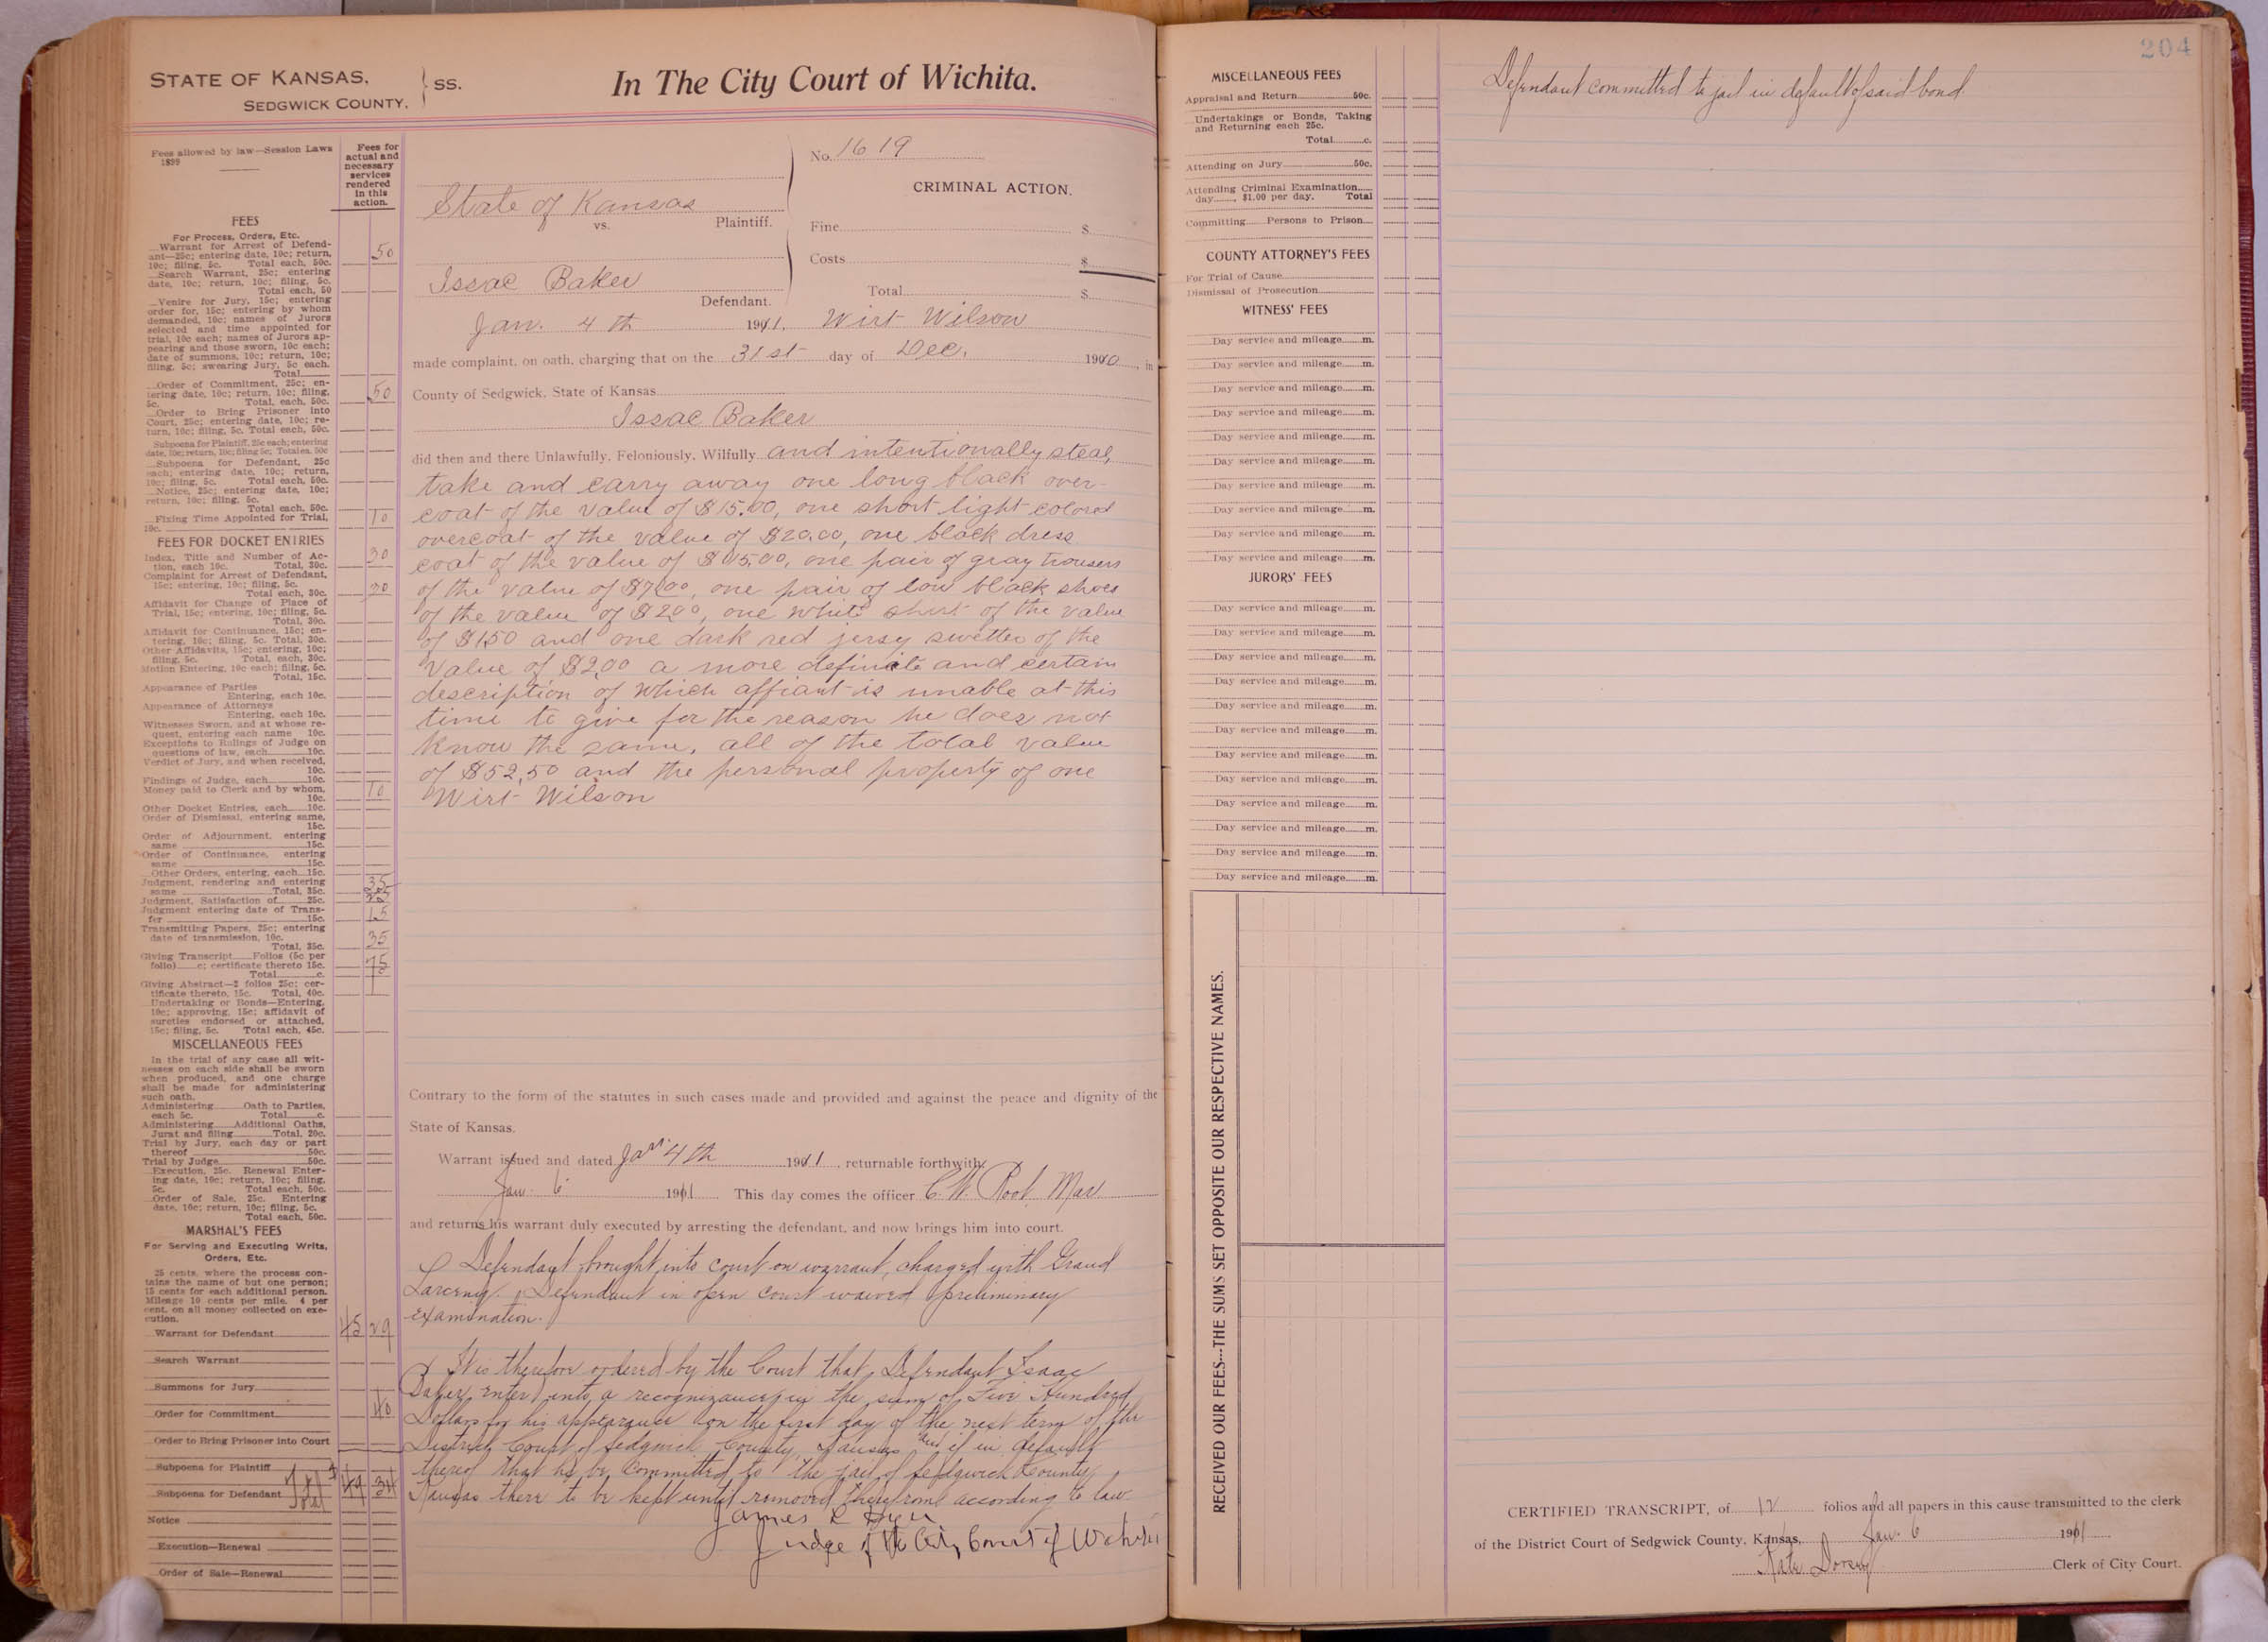 STATE OF KANSAS,
SEDGWICK COUNTY,
SS.
In The City Court of Wichita.
Fees allowed by law—Session Laws
1899
Fees for
actual and
necessary
services
rendered
in this
action.
FEES
For Process, Orders, Etc.
Warrant for Arrest of Defend-
ant—25c; entering date, 10c; return,
10c; filing, 5c. Total each, 50c.
50
Search Warrant, 25c; entering
date, 10c; return, 10c; filing, 5c.
Total each, 50
Venire for Jury, 15c; entering
order for, 15c; entering by whom
demanded, 10c; names of Jurors
selected and time appointed for
trial, 10c each; names of Jurors ap-
pearing and those sworn, 10c each;
date of summons, 10c; return, 10c;
filing, 5c; swearing Jury, 5c each.
Total
Order of Commitment, 25c; en-
tering date, 10c; return, 10c; filing,
5c. Total, each, 50c.
50
Order to Bring Prisoner into
Court, 25c; entering date, 10c; re-
turn, 10c; filing, 5c. Total each, 50c.
Subpoena for Plaintiff, 25c each; entering
date, 10c; return, 10c; filing 5c; Total ea. 50c
Subpoena for Defendant, 25c
each; entering date, 10c; return,
10c; filing, 5c. Total each, 50c.
Notice, 25c; entering date, 10c;
return, 10c; filing, 5c.
Total each, 50c.
Fixing Time Appointed for Trial,
10c.
10
FEES FOR DOCKET ENTRIES
Index, Title and Number of Ac-
tion, each 10c. Total, 30c.
30
Complaint for Arrest of Defendant,
15c; entering, 10c; filing, 5c.
Total each, 30c.
30
Affidavit for Change of Place of
Trial, 15c; entering, 10c; filing, 5c.
Total, 30c.
Affidavit for Continuance, 15c; en-
tering, 10c; filing, 5c. Total, 30c.
Other Affidavits, 15c; entering, 10c;
filing, 5c. Total, each, 30c.
Motion Entering, 10c each; filing, 5c.
Total, 15c.
Appearance of Parties
Entering, each 10c.
Appearance of Attorneys
Entering, each 10c.
Witnesses Sworn, and at whose re-
quest, entering each name 10c.
Exceptions to Rulings of Judge on
questions of law, each 10c.
Verdict of Jury, and when received,
10c.
Findings of Judge, each 10c.
Money paid to Clerk and by whom,
10c.
10
Other Docket Entries, each 10c.
Order of Dismissal, entering same,
15c.
Order of Adjournment, entering
same 15c.
Order of Continuance, entering
same 15c.
Other Orders, entering, each 15c.
Judgment, rendering and entering
same Total, 35c.
35
Judgment, Satisfaction of 25c.
25
Judgment entering date of Trans-
fer 15c.
15
Transmitting Papers, 25c; entering
date of transmission, 10c.
Total, 35c.
35
Giving Transcript Folios (5c per
folio) c; certificate thereto 15c.
Total c.
75
Giving Abstract—2 folios 25c; cer-
tificate thereto, 15c. Total, 40c.
Undertaking or Bonds—Entering,
10c; approving, 15c; affidavit of
sureties endorsed or attached,
15c; filing, 5c. Total each, 45c.
MISCELLANEOUS FEES
In the trial of any case all wit-
nesses on each side shall be sworn
when produced, and one charge
shall be made for administering
such oath.
Administering Oath to Parties,
each 5c. Total c.
Administering Additional Oaths,
Jurat and filing Total, 20c.
Trial by Jury, each day or part
thereof 50c.
Trial by Judge 50c.
Execution, 25c. Renewal Enter-
ing date, 10c; return, 10c; filing,
5c. Total each, 50c.
Order of Sale, 25c. Entering
date, 10c; return, 10c; filing, 5c.
Total each, 50c.
MARSHAL'S FEES
For Serving and Executing Writs,
Orders, Etc.
25 cents, where the process con-
tains the name of but one person;
15 cents for each additional person.
Mileage 10 cents per mile. 4 per
cent. on all money collected on exe-
cution.
Warrant for Defendant 45 29
Search Warrant
Summons for Jury
Order for Commitment 40
Order to Bring Prisoner into Court
Subpoena for Plaintiff
Subpoena for Defendant
Total $49 34
Notice
Execution—Renewal
Order of Sale—Renewal
State of Kansas
vs. Plaintiff.
Issac Baker
Defendant.
No. 1619
CRIMINAL ACTION.
Fine $
Costs $
Total $
Jan. 4th 1911. Wirt Wilson
made complaint, on oath, charging that on the 31st day of Dec. 1910, in
County of Sedgwick, State of Kansas
Issac Baker
did then and there Unlawfully, Feloniously, Wilfully and intentionally steal,
take and carry away one long black over-
coat of the value of $15.00, one short light colored
overcoat of the value of $20.00, one black dress
coat of the value of $5.00, one pair of gray trousers
of the value of $7.00, one pair of low black shoes
of the value of $2.00, one white shirt of the value
of $1.50 and one dark red jersy swetter of the
value of $2.00 a more definite and certain
description of which affiant is unable at this
time to give for the reason he does not
know the same, all of the total value
of $52.50 and the personal property of one
Wirt Wilson
Contrary to the form of the statutes in such cases made and provided and against the peace and dignity of the
State of Kansas.
Warrant issued and dated Jan 4th 1911, returnable forthwith.
Jan. 6 1911 This day comes the officer C.W. Root, Mar.
and returns his warrant duly executed by arresting the defendant, and now brings him into court.
Defendant brought into court on warrant, charged with Grand
Larceny. Defendant in open court waived preliminary
examination.
It is therefore ordered by the Court that Defendant Isaac
Baker enter into a recognizance in the sum of Five Hundred
Dollars for his appearance on the first day of the next term of the
District Court of Sedgwick County, Kansas and if in default
thereof that he be committed to the jail of Sedgwick County,
Kansas there to be kept until removed therefrom according to law.
James L Dyer
Judge of the City Court of Wichita
204
MISCELLANEOUS FEES
Appraisal and Return 50c.
Undertakings or Bonds, Taking
and Returning each 25c.
Total c.
Attending on Jury 50c.
Attending Criminal Examination
day, $1.00 per day. Total
Committing Persons to Prison
COUNTY ATTORNEY'S FEES
For Trial of Cause
Dismissal of Prosecution
WITNESS' FEES
Day service and mileage m.
Day service and mileage m.
Day service and mileage m.
Day service and mileage m.
Day service and mileage m.
Day service and mileage m.
Day service and mileage m.
Day service and mileage m.
Day service and mileage m.
Day service and mileage m.
JURORS' FEES
Day service and mileage m.
Day service and mileage m.
Day service and mileage m.
Day service and mileage m.
Day service and mileage m.
Day service and mileage m.
Day service and mileage m.
Day service and mileage m.
Day service and mileage m.
Day service and mileage m.
Day service and mileage m.
Day service and mileage m.
RECEIVED OUR FEES---THE SUMS SET OPPOSITE OUR RESPECTIVE NAMES.
Defendant committed to jail in default of said bond
CERTIFIED TRANSCRIPT, of 12 folios and all papers in this cause transmitted to the clerk
of the District Court of Sedgwick County, Kansas, Jan. 6 1911
Kate Dorsey Clerk of City Court.